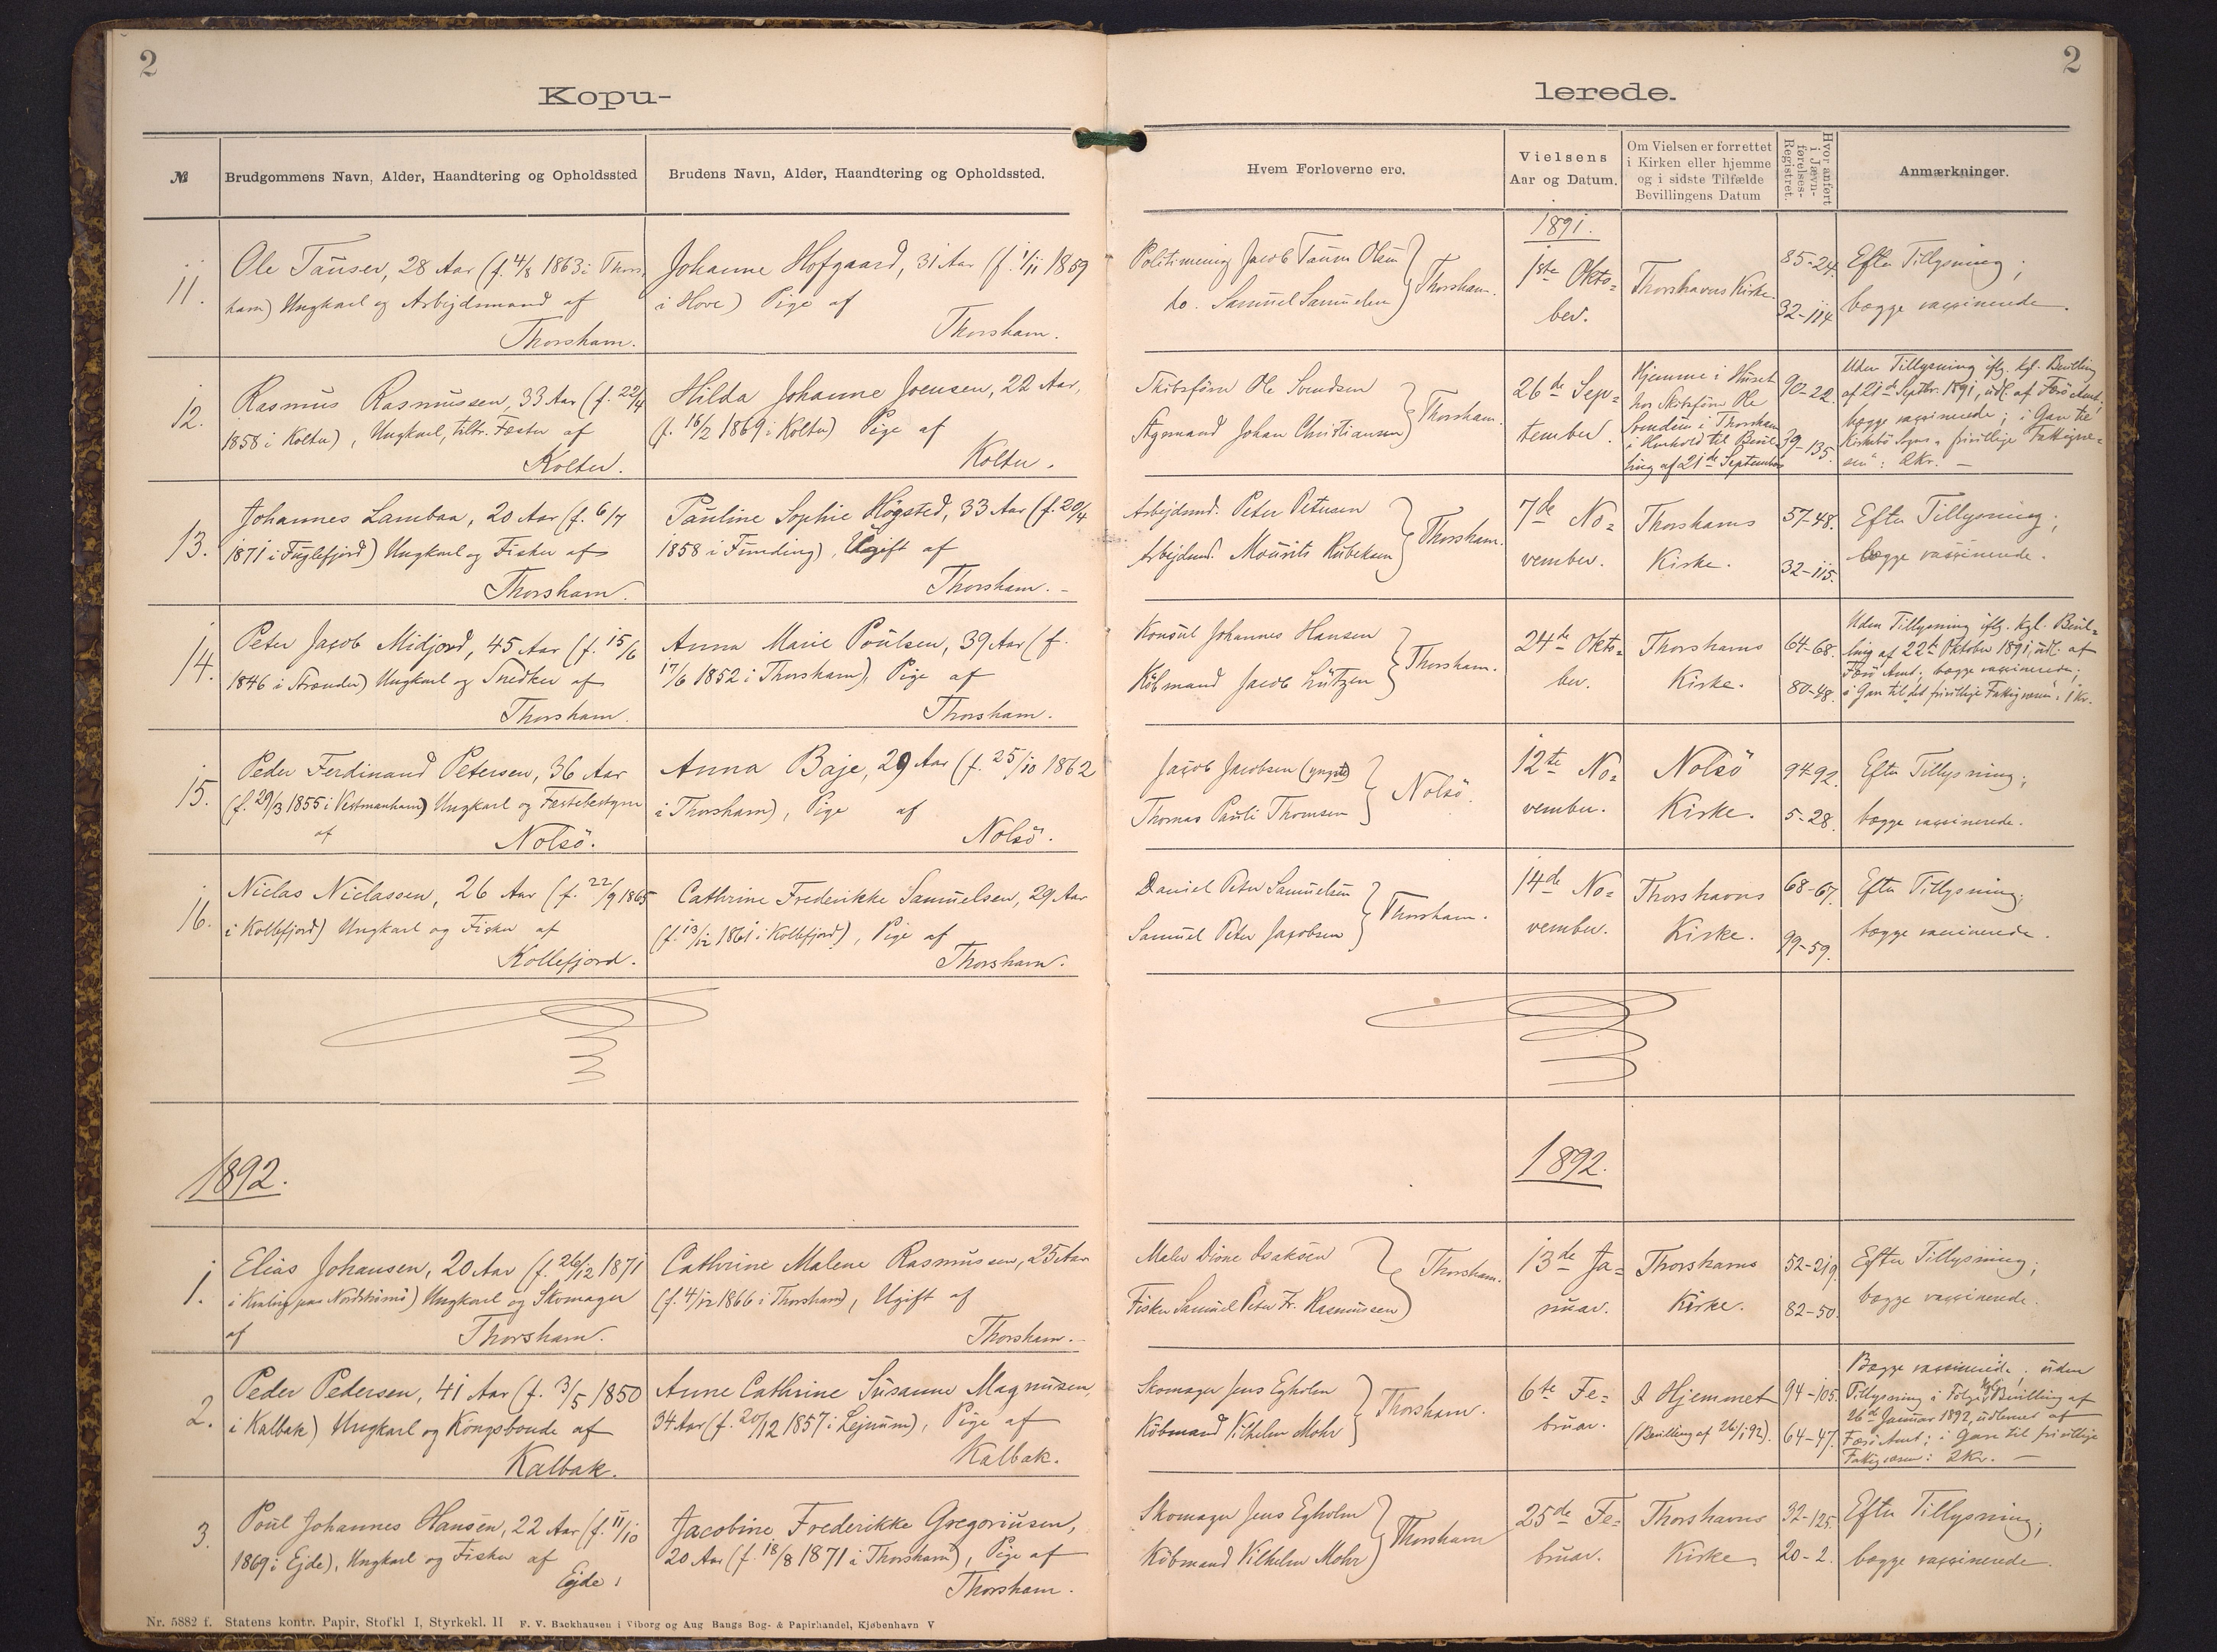 2
2
Kopu-
lerede.
№
Brudgommens Navn, Alder, Haandtering og Opholdssted
Brudens Navn, Alder, Haandtering og Opholdssted.
Hvem Forloverne ere.
Vielsens
Aar og Datum.
Om Vielsen er forrettet
i Kirken eller hjemme
og i sidste Tilfælde
Bevillingens Datum
Hvor anført
i Jævn-
førelses-
Registret.
Anmærkninger.
1891.
11.
Ole Tauser, 28 Aar (f. 4/8 1863 i Thors-
havn) Ungkarl og Arbejdsmand af
Thorshavn.
Johanne Hofgaard, 31 Aar (f. 1/11 1859
i Hove) Pige af
Thorshavn.
Jacob Olsen
do. Samuel Samuelsen
Thorshavn.
1ste Okto=
ber.
Thorshavns Kirke.
85-24.
32-114
Efter Tillysning;
begge vaccinerede.
12.
Rasmus Rasmussen, 33 Aar (f. 22/4
1858 i Kolter), Ungkarl, tiltr. Fæster af
Kolter.
Hilda Johanne Joensen, 22 Aar,
(f. 16/2 1869 i Kolter) Pige af
Kolter.
Skibsfører Ole Svendsen
Johan Christiansen
Thorshavn.
26de Sep=
tember.
Hjemme i Huset
hos Skibsfører Ole
Svendsen i Thorshavn
i Henhold til Bevil=
ling af 21de September
90-22.
39-135.
Uden Tillysning iflg. kgl. Bevilling
af 21de Septbr. 1891, udf. af Færø Amt;
begge vaccinerede; i Gave til
Kirkebø Sogns "frivillige Fattigvæ=
sen": 2 Kr. —
13.
Johannes Lambaa, 20 Aar (f. 6/7
1871 i Fuglefjord) Ungkarl og Fisker af
Thorshavn.
Pauline Sophie Høgsted, 33 Aar (f. 20/4
1858 i Funding), Ugift af
Thorshavn. -
Arbejdsmd. Peter Petersen
Arbejdsmd. Mourits Rubeksen
Thorshavn.
7de No=
vember.
Thorshavns
Kirke.
57-48.
32-115.
Efter Tillysning;
begge vaccinerede.
14.
Peter Jacob Midjord, 45 Aar (f. 15/6
1846 i Strender) Ungkarl og Snedker af
Thorshavn.
Anna Marie Poulsen, 39 Aar (f.
17/6 1852 i Thorshavn), Pige af
Thorshavn.
Konsul Johannes Hansen
Købmand Jacob Lützen
Thorshavn.
24de Okto=
ber.
Thorshavns
Kirke.
64-68.
80-48.
Uden Tillysning iflg. kgl. Bevil=
ling af 22de Oktober 1891, udf. af
Færø Amt; begge vaccinerede;
i Gave til det frivillige Fattigvæsen: 1 Kr.
15.
Peder Ferdinand Petersen, 36 Aar
(f. 29/3 1855 i Vestmanhavn) Ungkarl og Fæstebestyrer
af
Nolsö.
Anna Baje, 29 Aar (f. 25/10 1862
i Thorshavn), Pige af
Nolsö.
Jacob Jacobsen (yngste)
Thomas Pauli Thomsen
Nolsö.
12te No=
vember.
Nolsö
Kirke.
94-92.
5-28.
Efter Tillysning;
begge vaccinerede.
16.
Niclas Niclassen, 26 Aar (f. 22/9 1865
i Kollefjord) Ungkarl og Fisker af
Kollefjord.
Cathrine Frederikke Samuelsen, 29 Aar
(f. 13/12 1861 i Kollefjord), Pige af
Thorshavn.
Daniel Peter Samuelsen
Samuel Peter Jacobsen
Thorshavn.
14de No=
vember.
Thorshavns
Kirke.
68-67.
99-59.
Efter Tillysning;
begge vaccinerede.
1892.
1892.
1.
Elias Johansen, 20 Aar (f. 26/12 1871
i Kvalvig paa Nordstrømø) Ungkarl og Skomager
af
Thorshavn.
Cathrine Malene Rasmussen, 25 Aar
(f. 4/12 1866 i Thorshavn), Ugift af
Thorshavn. -
Maler Dione Isaksen
Fisker Samuel Peter Fr. Rasmussen
Thorshavn.
13de Ja=
nuar.
Thorshavns
Kirke.
52-219.
82-50.
Efter Tillysning;
begge vaccinerede.
2.
Peder Pedersen, 41 Aar (f. 3/5 1850
i Kalbak) Ungkarl og Kongsbonde af
Kalbak.
Anne Cathrine Susanne Magnusen,
34 Aar (f. 20/12 1857 i Lejnum), Pige af
Kalbak.
Skomager Jens Egholm
Købmand Vilhelm Mohr
Thorshavn.
6te Fe=
bruar.
I Hjemmet
(Bevilling af 26/1 92).
94-105.
64-47.
Begge vaccinerede; uden
Tillysning i Følge kgl. Bevilling af
26de Januar 1892, udfærd. af
Færø Amt; i Gave til frivillige
Fattigvæsen: 2 Kr. —
3.
Poul Johannes Hansen, 22 Aar (f. 11/10
1869 i Ejde), Ungkarl og Fisker af
Ejde.
Jacobine Frederikke Gregoriusen,
20 Aar (f. 18/8 1871 i Thorshavn), Pige af
Thorshavn.
Skomager Jens Egholm
Købmand Vilhelm Mohr
Thorshavn
25de Fe=
bruar.
Thorshavns
Kirke
32-125.
20-2.
Efter Tillysning;
begge vaccinerede.
Nr. 5882 f. Statens kontr. Papir, Stofkl I, Styrkekl. II F. V. Backhausen i Viborg og Aug Bangs Bog- & Papirhandel, Kjøbenhavn V